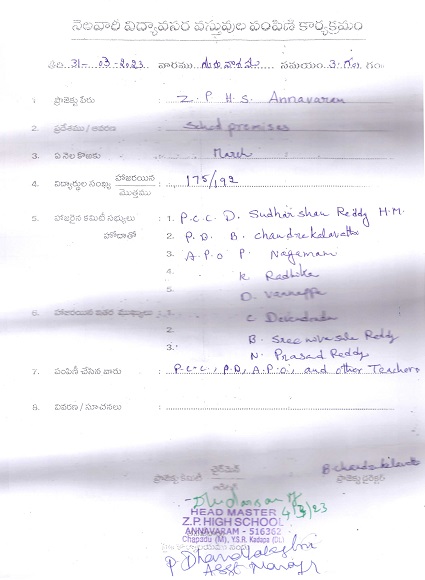 నెలవారీ విద్యావసర వస్తువుల పంపిణీ కార్యక్రమం
తేది 31-03-2023 వారము సమయం 3 గం.
1. ప్రాజెక్టు పేరు : Z.P.H.S. Annavaram
2. ప్రదేశము / ఆవరణ : School premises
3. ఏ నెల కొరకు : March
4. విద్యార్థుల సంఖ్య హాజరయిన / మొత్తము : 175/192
5. హాజరైన కమిటీ సభ్యులు : 1. P.C.C. D. Sudharshan Reddy H.M.
హోదాతో 2. P.D. B. Chandrakalavathi
3. A.P.O P. Nagamani
4. K. Radhika
5. D. Vannappa
6. హాజరయిన ఇతర ముఖ్యులు : 1. C. Devendrudu
2. B. Sreenivasula Reddy
3. N. Prasad Reddy
7. పంపిణీ చేసిన వారు : P.C.C., P.D, A.P.O, and other Teachers
8. వివరణ / సూచనలు :
ప్రాజెక్టు కమిటీ ఛైర్మెన్
B Chandrakalavathi
ప్రాజెక్టు డైరెక్టర్
4/3/23
HEAD MASTER
Z.P. HIGH SCHOOL
ANNAVARAM - 516362
Chapadu (M), Y.S.R. Kadapa (Dt.)
P Dhanalakshmi
Asst Manager